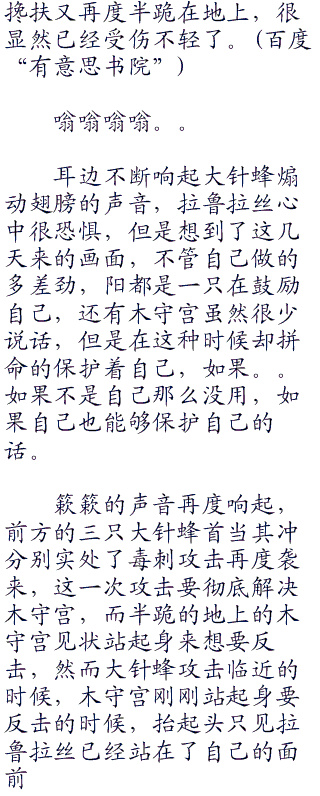 搀扶又再度半跪在地上，很
显然已经受伤不轻了。(百度
“有意思书院”)
嗡嗡嗡嗡。。
耳边不断响起大针蜂煽
动翅膀的声音，拉鲁拉丝心
中很恐惧，但是想到了这几
天来的画面，不管自己做的
多差劲，阳都是一只在鼓励
自己，还有木守宫虽然很少
说话，但是在这种时候却拼
命的保护着自己，如果。。
如果不是自己那么没用，如
果自己也能够保护自己的
话。
簌簌的声音再度响起，
前方的三只大针蜂首当其冲
分别实处了毒刺攻击再度袭
来，这一次攻击要彻底解决
木守宫，而半跪的地上的木
守宫见状站起身来想要反
击，然而大针蜂攻击临近的
时候，木守宫刚刚站起身要
反击的时候，抬起头只见拉
鲁拉丝已经站在了自己的面
前